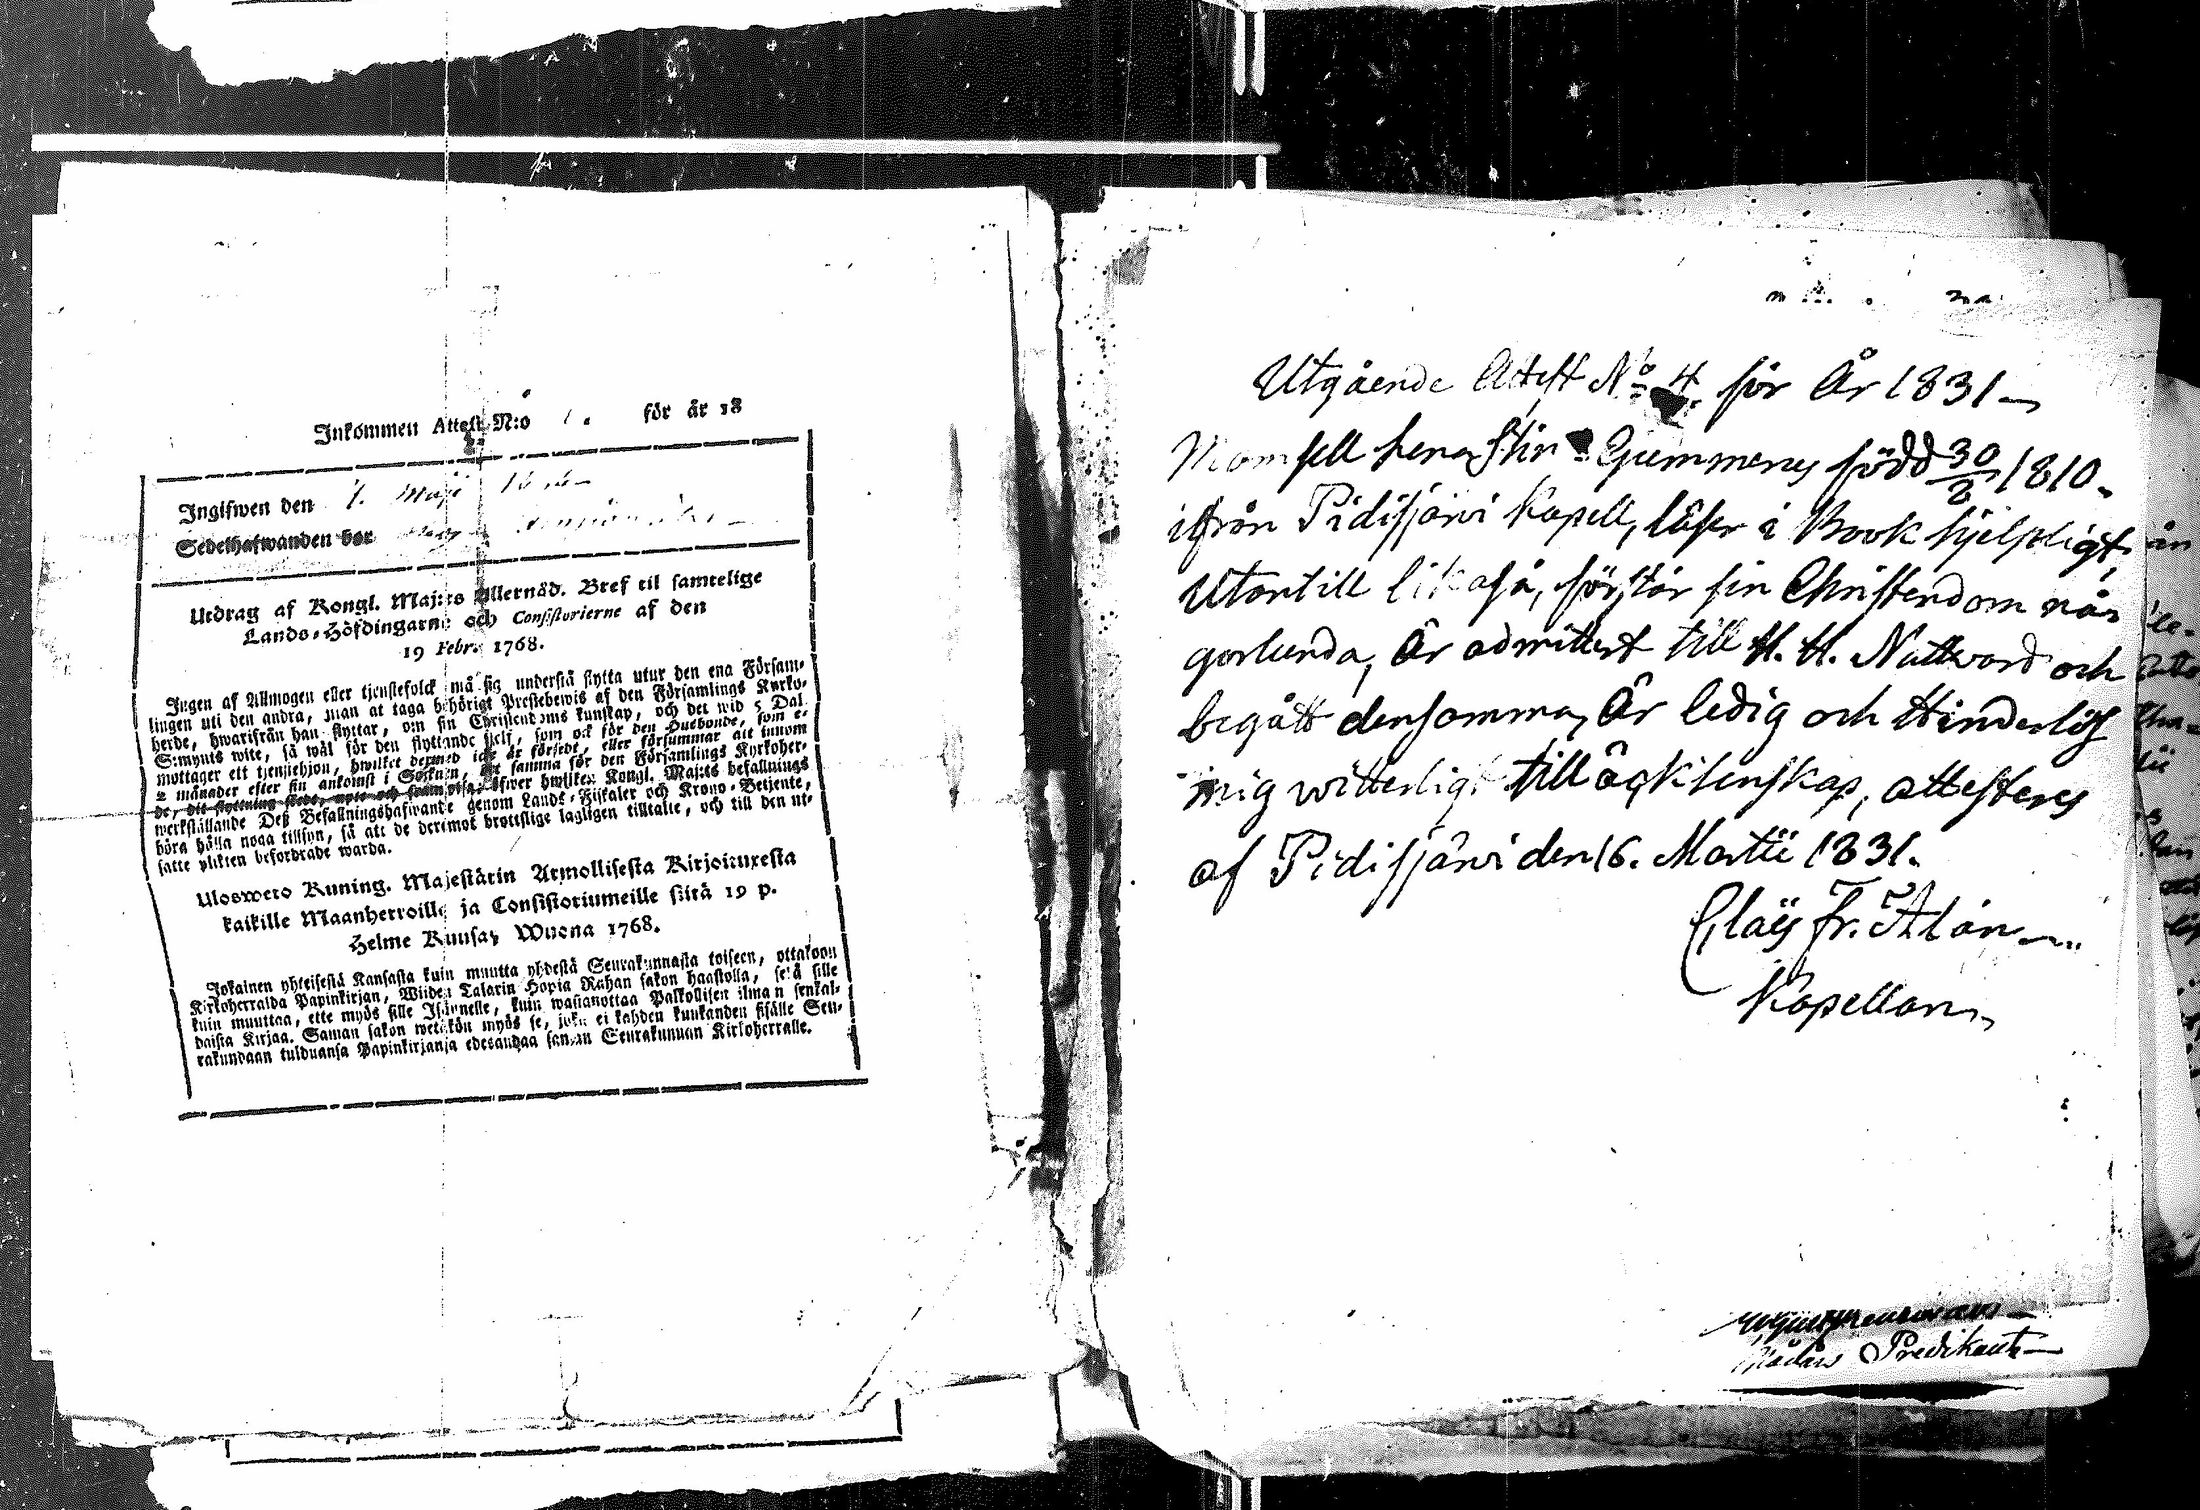 Inkommen Attest N:o för år 18
Ingifwen den 7. Maji
Sedelhafwanden bor
Utdrag af Kongl. Maj:ts Allernåd. Bref til samtelige
Lands-Höfdingarne och Consistorierne af den
19 Febr. 1768.
Ingen af Allmogen eller tjenstefolck må sig understå flytta utur den ena Försam-
lingen uti den andra, utan at taga behörigt Prestebewis af den Församlings Kyrko-
herde, hwarifrån han flyttar, om sin Christendoms kunskap, och det wid 5 Dal.
S:mynts wite, så wäl för den flyttande sjelf, som ock för den Husbonde, som e-
mottager ett tjenstehjon, hwilket dermed icke är försedt, eller försummar att innom
2 månader efter sin ankomst i Socknen, samma för den Församlings Kyrkoher-
de, dit flyttning skedt, öfwer hwilken Kongl. Maj:ts befallnings
werkställande Deß Befallningshafwande genom Lands-Fiskaler och Krono-Betjente,
böra hålla noga tillsyn, så att de deremot brottslige lagligen tilltalte, och till den ut-
satte plikten befordrade warda.
Ulosweto Kuning. Majestätin Armollisesta Kirjoituxesta
kaikille Maanherroille ja Consistoriumeille siitä 19 p.
Helme Kuusa, Wuona 1768.
Jokainen yhteisestä Kansasta kuin muutta yhdestä Seurakunnasta toiseen, ottakoon
Kirkoherralda Papinkirjan, Wiiden Talarin Hopia Rahan sakon haastolla, sekä sille
kuin muuttaa, ette myös sille Isännelle, kuin wastanottaa Palkollisen ilman senkal-
daista Kirjaa. Saman sakon wetäkön myös se, joka ei kahden kuukauden sisälle Seu-
rakundaan tulduansa Papinkirjanja edesandaa sanan Seurakunnan Kirkoherralle.
Utgående Attest No 4. för År 1831
Mamsell Lena Stin Gummerus född 30/8 1810.
ifrån Pidisjärvi Kapell, läser i Book hjelpligt,
Utantill likaså, förstår sin Christendom nå-
gorlunda, Är admitterat till H. H. Nattward och
begått densamma, Är ledig och Hinderlös
mig witterligt till ägktenskap, attesteras
af Pidisjärvi den 16. Martii 1831.
Claës Fr. Alan
Kapellan
Predikant